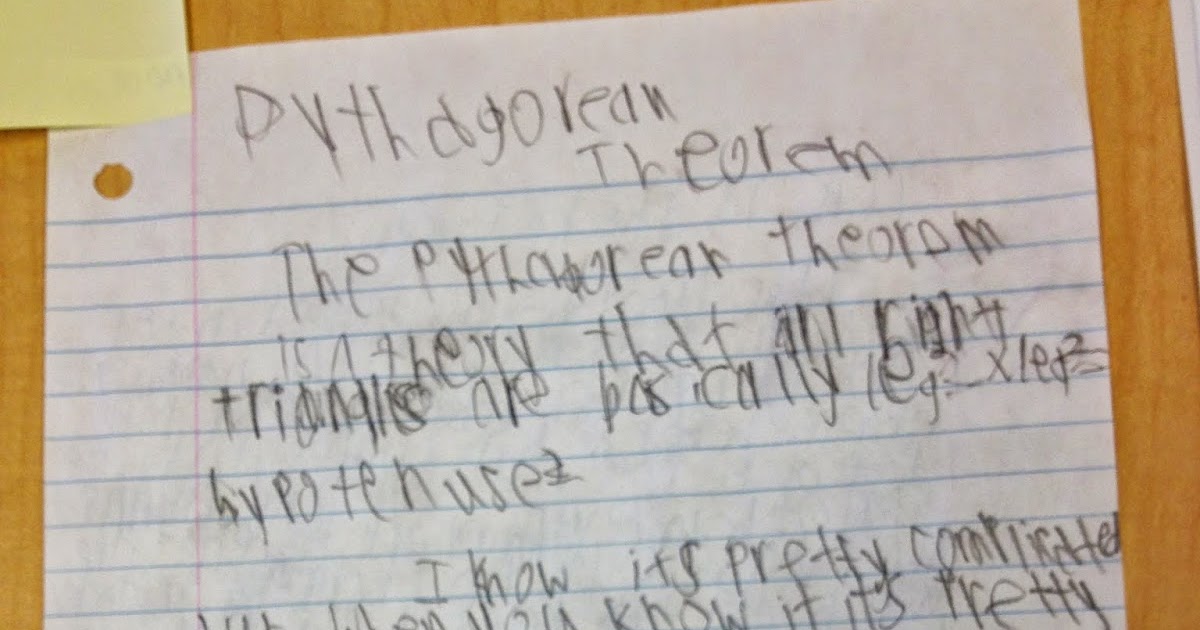 Pythagorean
Theorem
The Pythagorean theorom
is a theory that all right
triangles are basically leg² x leg²=
hypotenuse²
I know its pretty complicated
but when you know it it's pretty